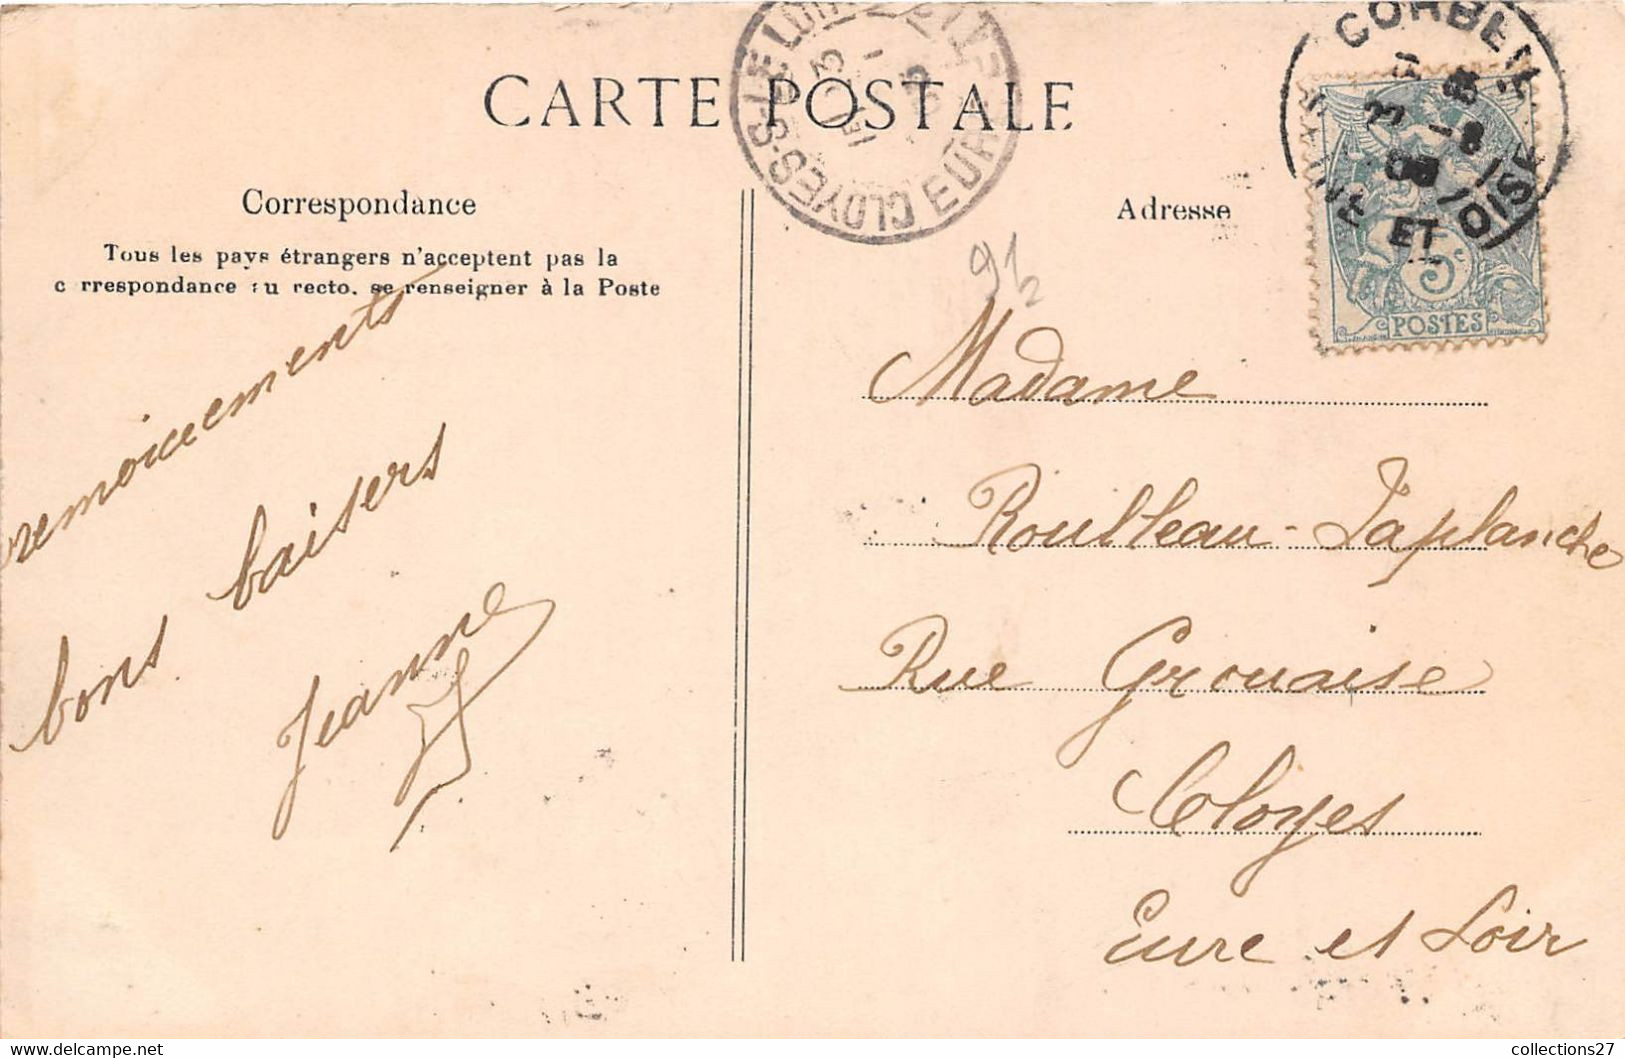 CARTE POSTALE
Correspondance
Tous les pays étrangers n'acceptent pas la
c rrespondance au recto. se renseigner à la Poste
bons baisers
Jeanne
CLOYES-S-LE LOIR
EURE
Adresse
CORBEIL
ET OISE
5c
POSTES
91
2
Madame
Roulleau-Laplanche
Rue Grouaise
Cloyes
Eure et Loir
collections27